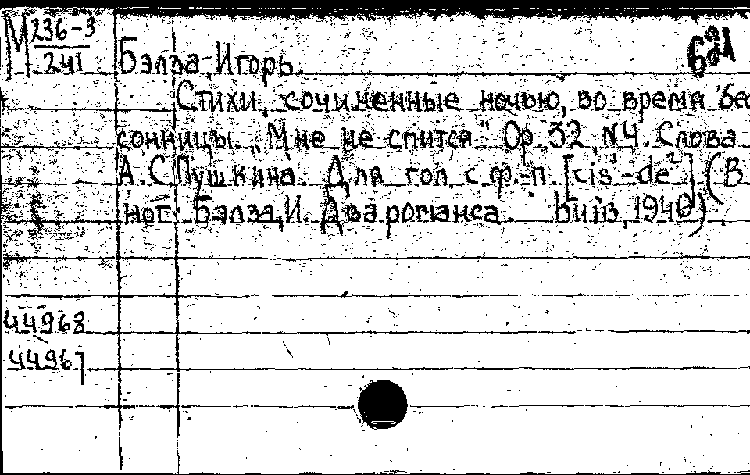 М 236-3
241
Бэлза, Игорь.
Стихи, сочиненные ночью, во время бес
сонницы. „Мне не спится". Ор. 32, №4. Слова
А. С. Пушкина. Для гол. с ф.-п. [cis¹-de²]. (В
нот: Бэлза, И. Два романса. Київ, 1940).
44968
44967